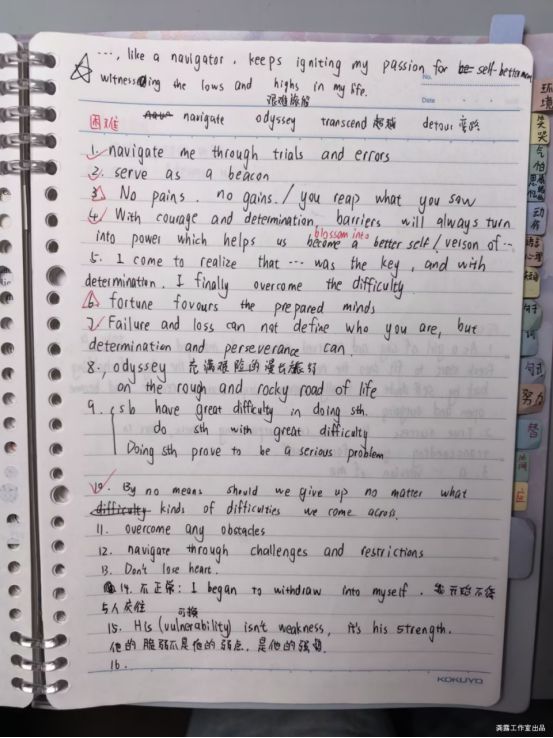 ..., like a navigator, keeps igniting my passion for self-betterment
witnessing the lows and highs in my life.
No.
Date
困难 navigate odyssey transcend 超越 detour 弯路
1. navigate me through trials and errors
2. serve as a beacon
3. No pains, no gains. / you reap what you saw
4. With courage and determination, barriers will always turn
blossom into
into power which helps us become a better self / verison of ...
5. I come to realize that ... was the key, and with
determination, I finally overcome the difficulty
6. fortune fovours the prepared minds
7. Failure and loss can not define who you are, but
determination and perseverance can.
8. odyssey 充满艰险的漫长旅行
on the rough and rocky road of life
9. sb have great diffculty in doing sth.
do sth with great difficulty
Doing sth prove to be a serious problem
10. By no means should we give up no matter what
difficulty kinds of difficulties we come across.
11. overcome any obstacles
12. navigate through challenges and restrictions
13. Don't lose heart.
14. 不正常: I began to withdraw into myself. 开始不餐
与人交往
可换
15. His (vulnerability) isn't weakness, it's his strength.
他的脆弱不是他的弱点，是他的强项.
16.
KOKUYO
环境
哭笑
气怕
动作
句式
努力
龚露工作室出品